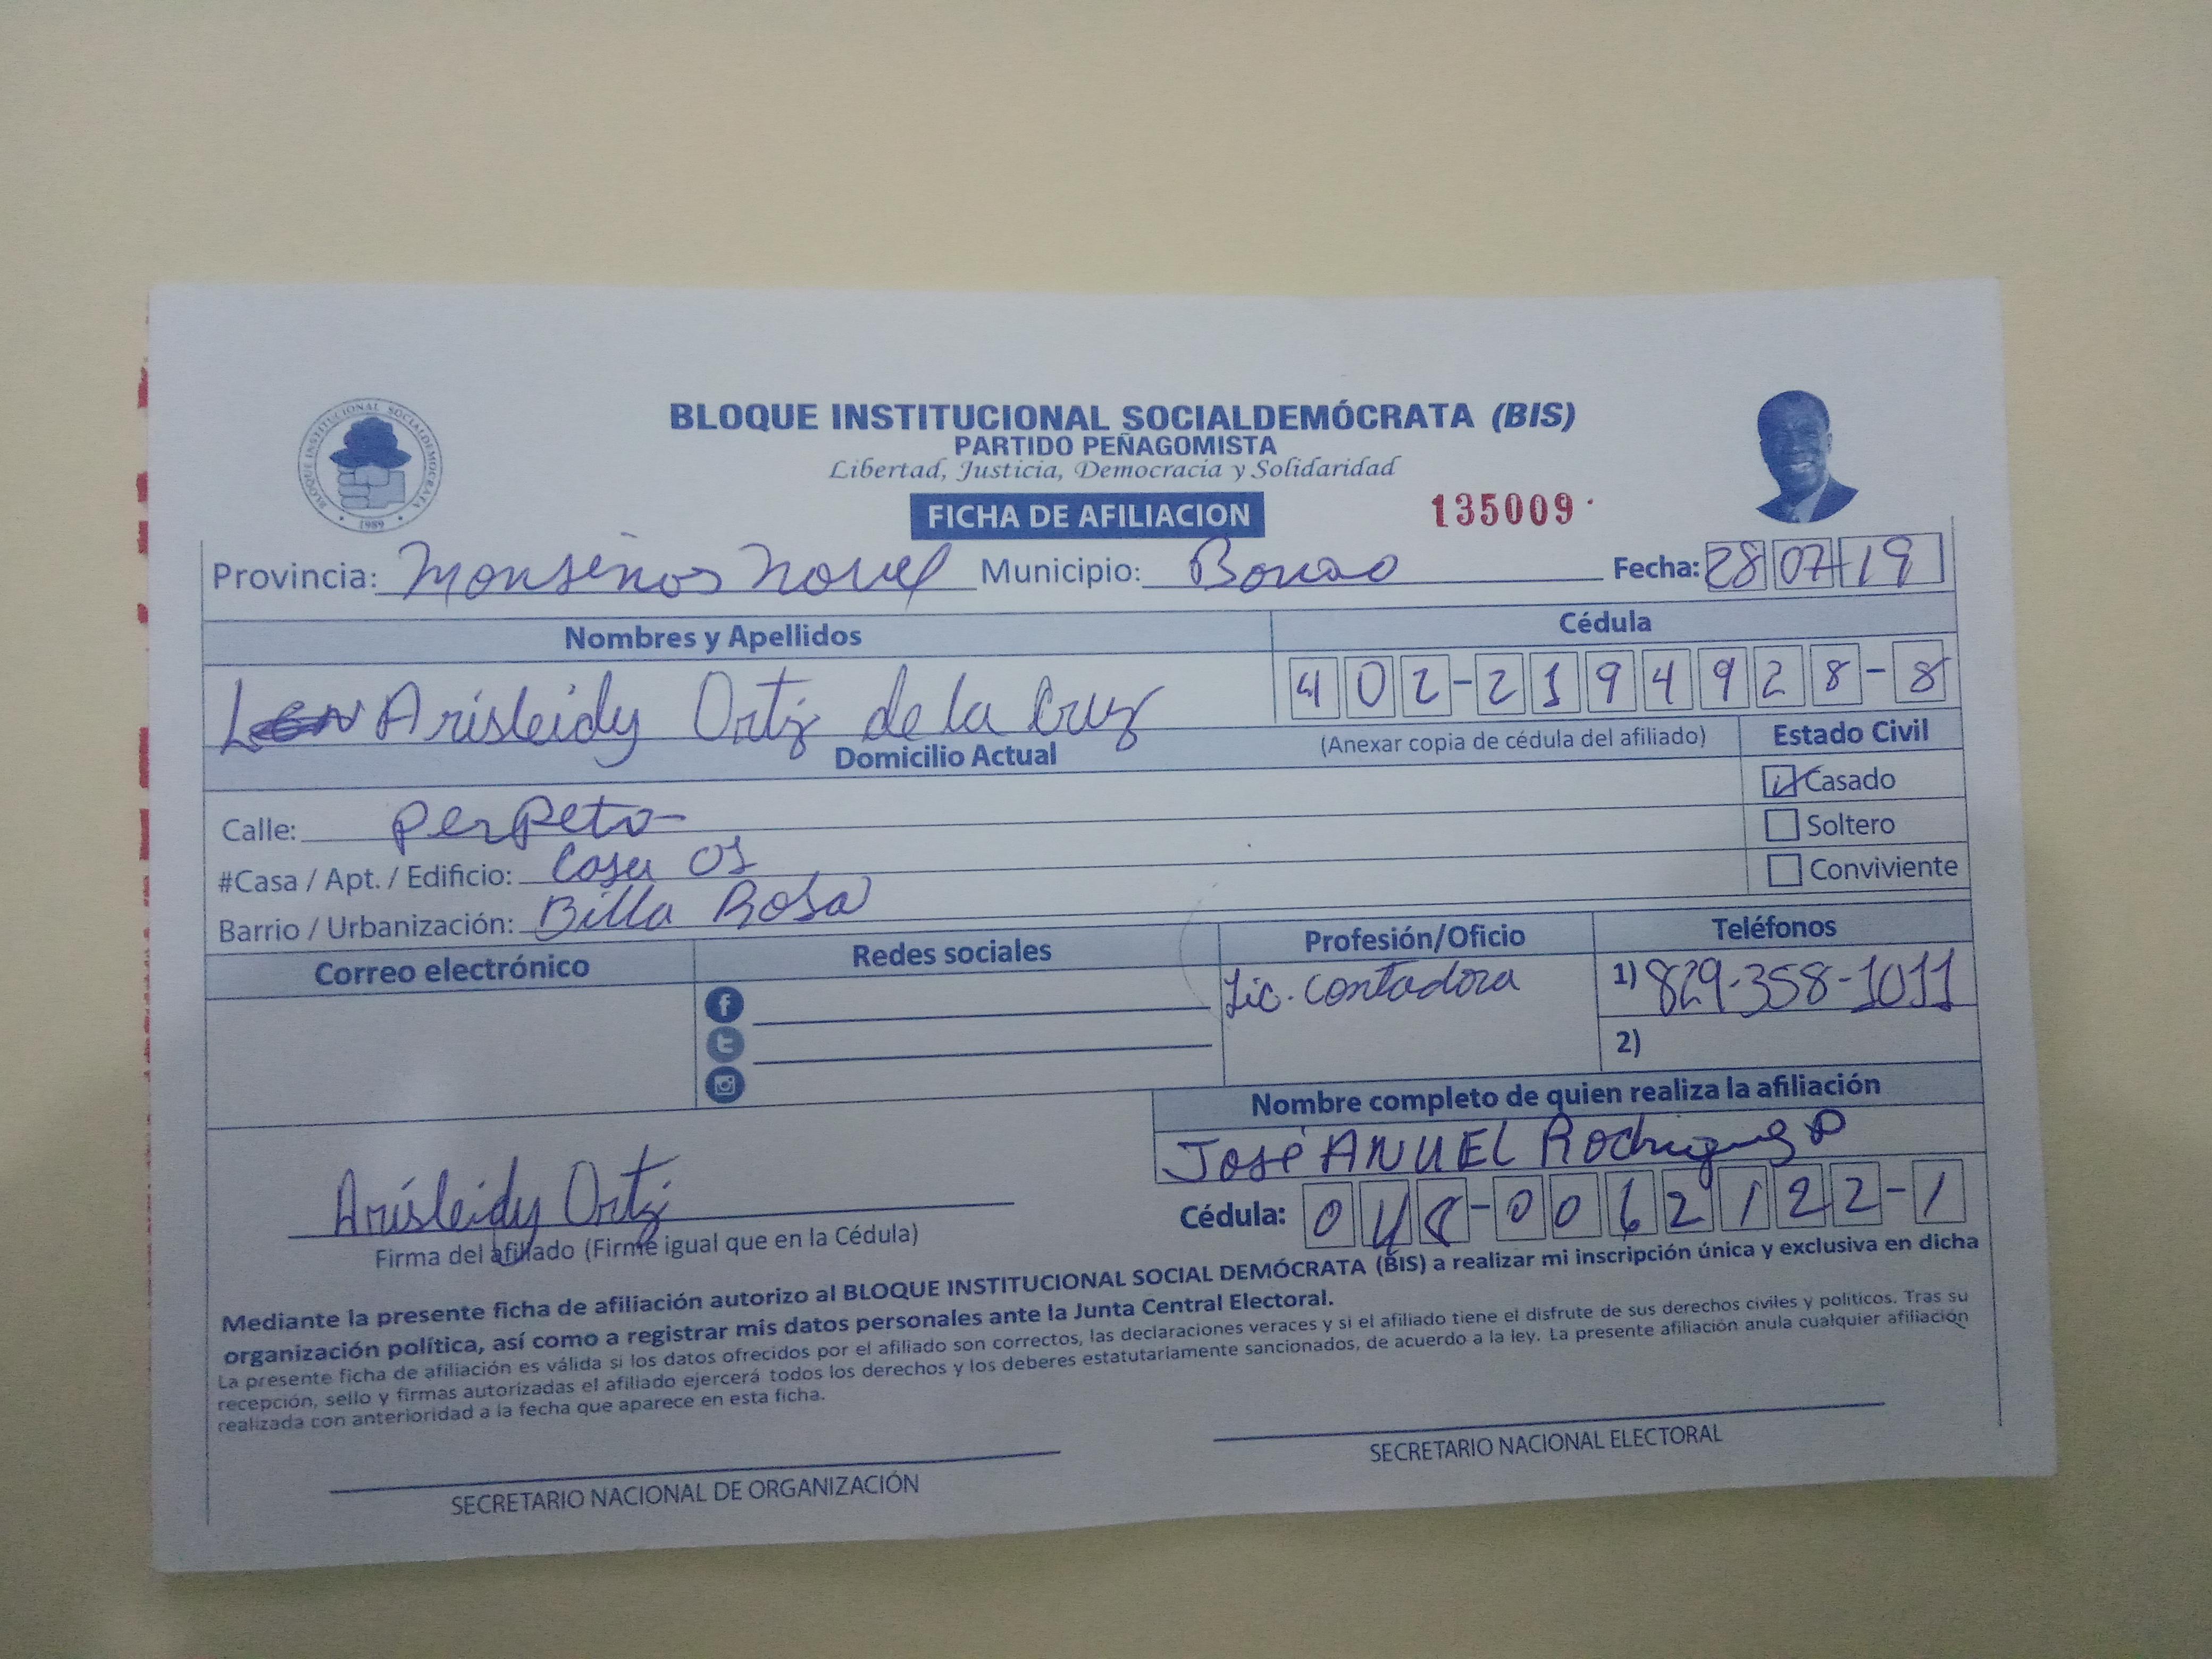 BLOQUE INSTITUCIONAL SOCIALDEMÓCRATA
1989
BLOQUE INSTITUCIONAL SOCIALDEMÓCRATA (BIS)
PARTIDO PEÑAGOMISTA
Libertad, Justicia, Democracia y Solidaridad
FICHA DE AFILIACION 135009
Provincia: Monseños Nouel Municipio: Bonao Fecha: 28 07 19
Nombres y Apellidos Cédula
Arisleidy Ortiz de la Cruz 402-2194928-8
Domicilio Actual (Anexar copia de cédula del afiliado) Estado Civil
Casado
Calle: PerPeto
Soltero
#Casa / Apt. / Edificio: Casa 01
Conviviente
Barrio / Urbanización: Billa Rosa
Correo electrónico Redes sociales Profesión/Oficio Teléfonos
Lic. Contadora 1) 829-358-1011
2)
Nombre completo de quien realiza la afiliación
José ANUEL Rodriguez P
Arisleidy Ortiz
Cédula: 048-0062122-1
Firma del afiliado (Firme igual que en la Cédula)
Mediante la presente ficha de afiliación autorizo al BLOQUE INSTITUCIONAL SOCIAL DEMÓCRATA (BIS) a realizar mi inscripción única y exclusiva en dicha
organización política, así como a registrar mis datos personales ante la Junta Central Electoral.
La presente ficha de afiliación es válida si los datos ofrecidos por el afiliado son correctos, las declaraciones veraces y si el afiliado tiene el disfrute de sus derechos civiles y políticos. Tras su
recepción, sello y firmas autorizadas el afiliado ejercerá todos los derechos y los deberes estatutariamente sancionados, de acuerdo a la ley. La presente afiliación anula cualquier afiliación
realizada con anterioridad a la fecha que aparece en esta ficha.
SECRETARIO NACIONAL DE ORGANIZACIÓN SECRETARIO NACIONAL ELECTORAL